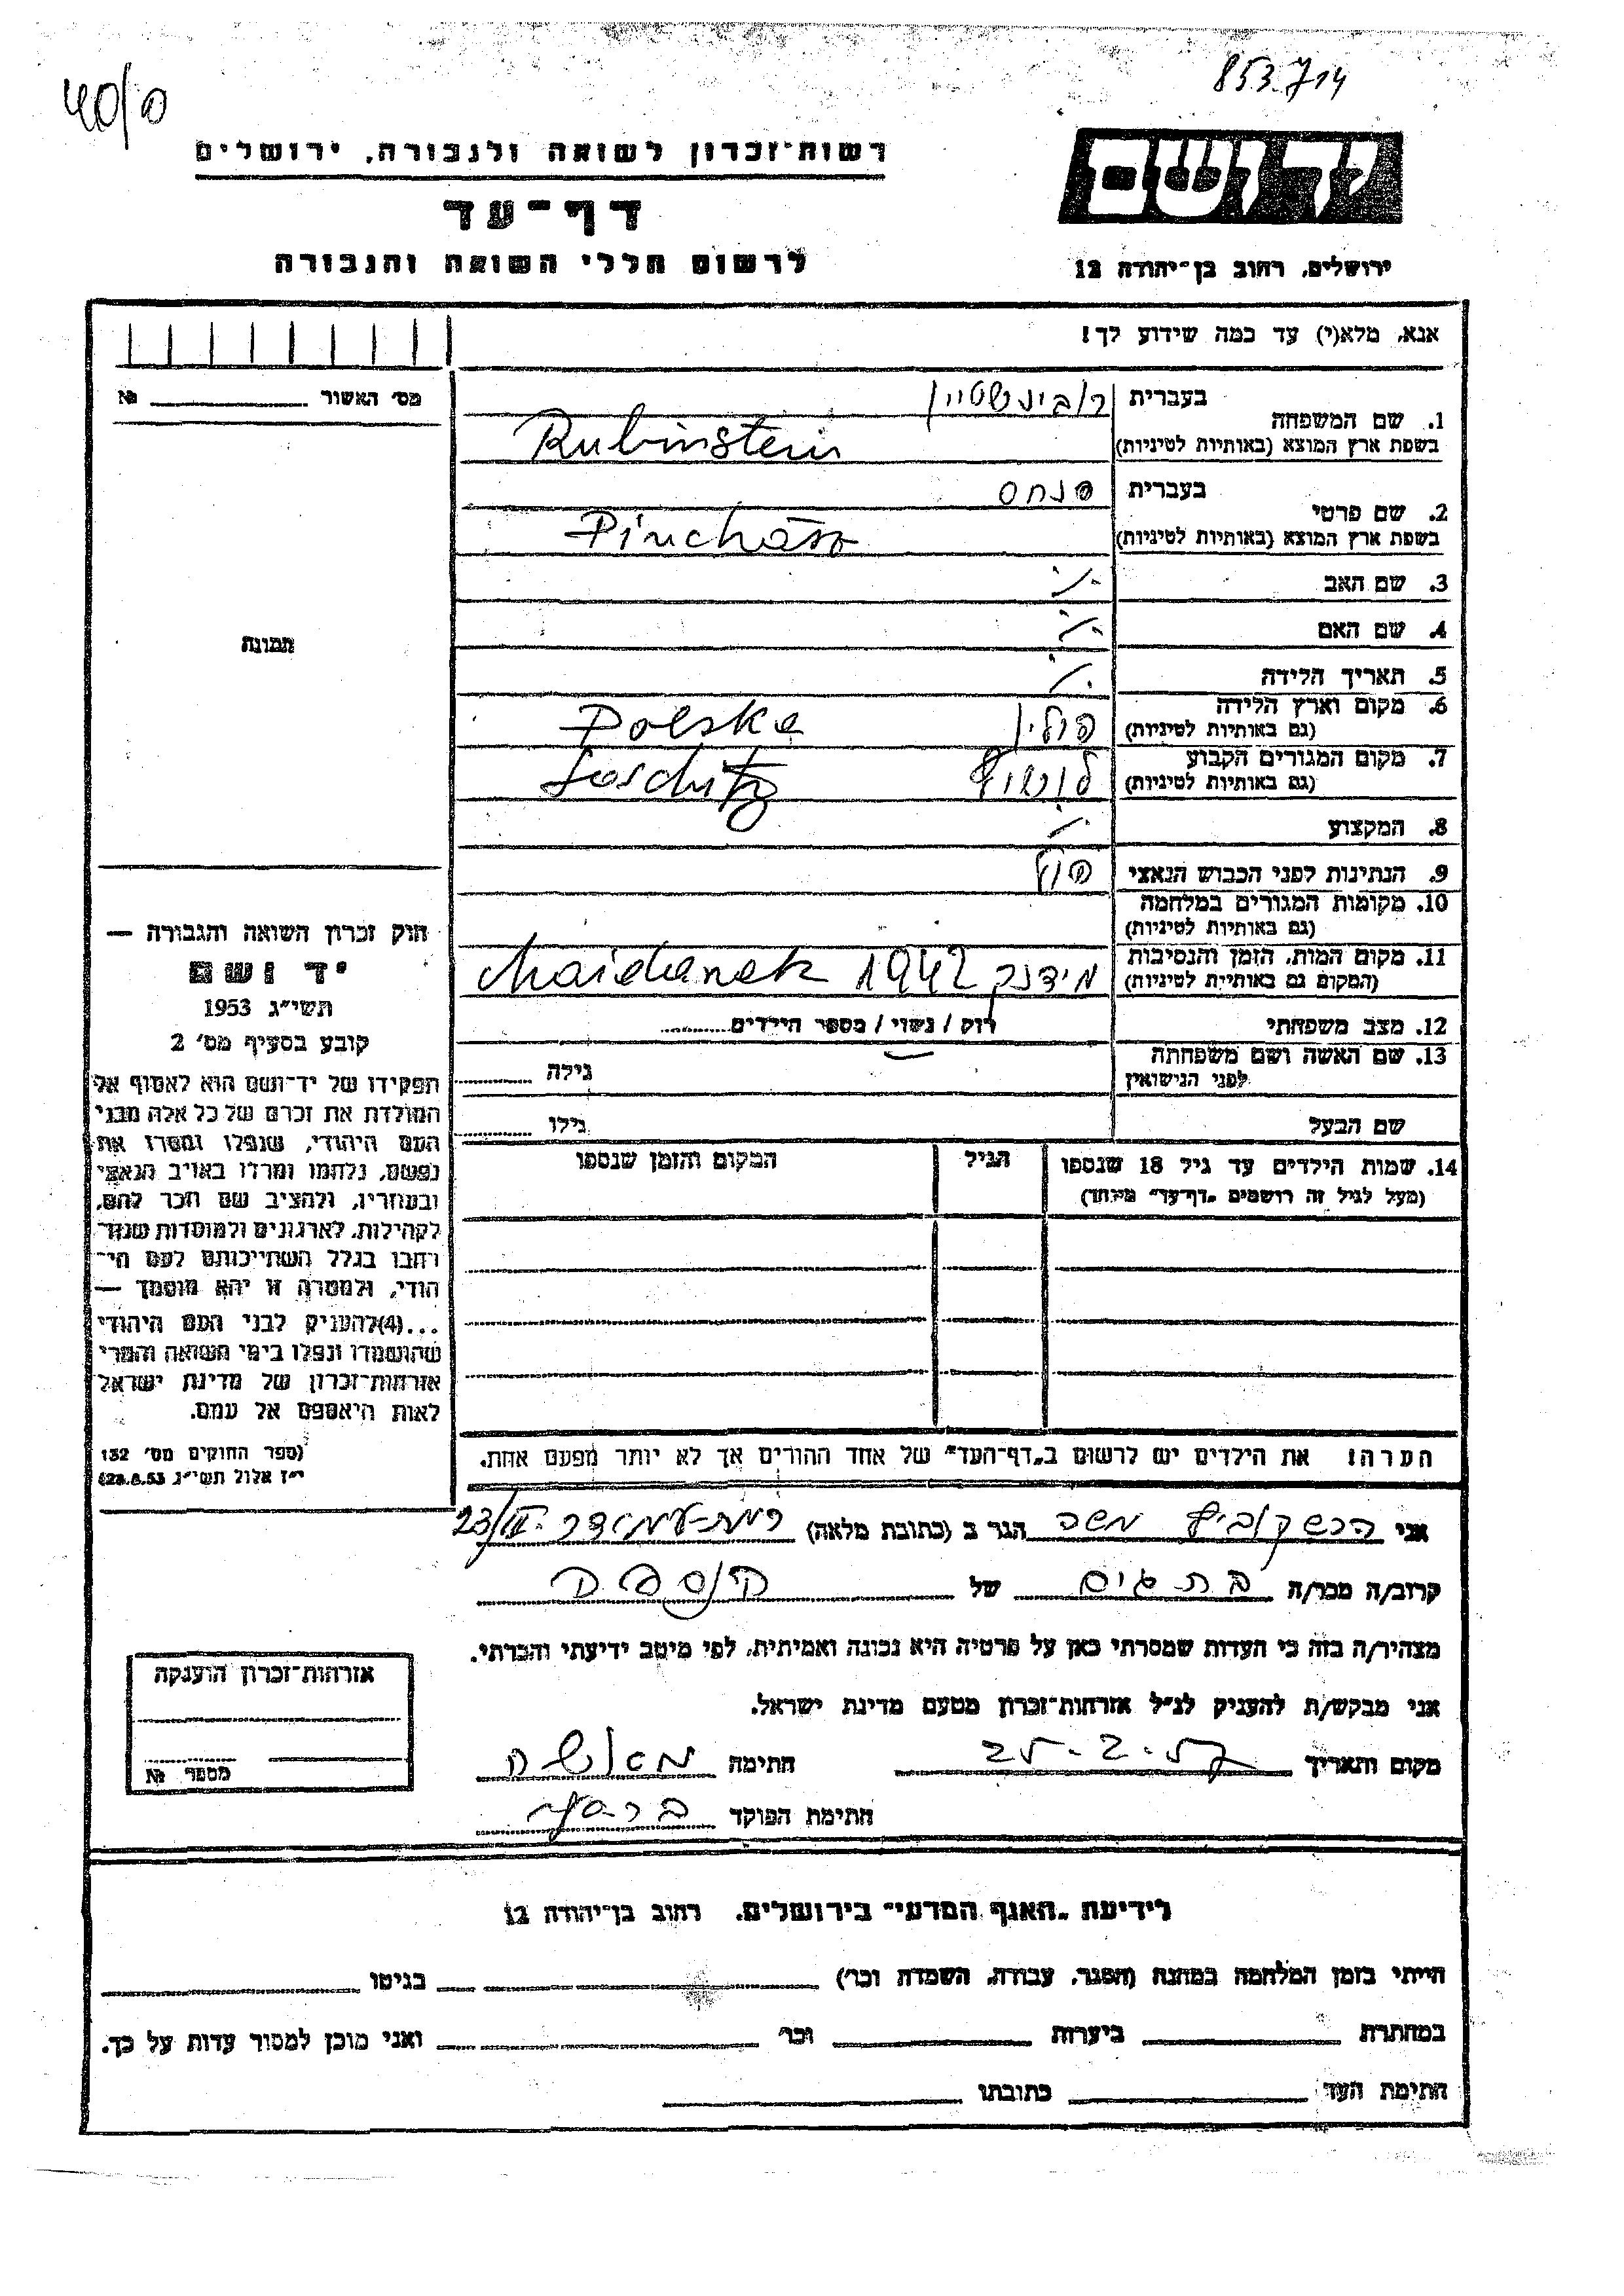 853.714
40/0
יד ושם
רשות-זכרון לשואה ולגבורה, ירושלים
דף-עד
לרשום חללי השואה והגבורה
ירושלים, רחוב בן-יהודה 12
אנא, מלא(י) עד כמה שידוע לך!
מס' האשור № 
1. שם המשפחה
בעברית רובינשטיין
בשפת ארץ המוצא (באותיות לטיניות) Rubinstein
2. שם פרטי
בעברית פנחס
בשפת ארץ המוצא (באותיות לטיניות) Pinchas
3. שם האב ./.
4. שם האם ./.
5. תאריך הלידה ./.
6. מקום וארץ הלידה פולין Polska
(גם באותיות לטיניות)
7. מקום המגורים הקבוע
(גם באותיות לטיניות)
8. המקצוע ./.
9. הנתינות לפני הכבוש הנאצי פול'
10. מקומות המגורים במלחמה
(גם באותיות לטיניות)
11. מקום המות, הזמן והנסיבות
(המקום גם באותיות לטיניות) מידנק 1942 Maidanek
12. מצב משפחתי רוק / נשוי / מספר הילדים
13. שם האשה ושם משפחתה גילה
לפני הנישואין
שם הבעל גילו
14. שמות הילדים עד גיל 18 שנספו הגיל המקום והזמן שנספו
(מעל לגיל זה רושמים "דף-עד" מיוחד)
הערה! את הילדים יש לרשום ב"דף-העד" של אחד ההורים אך לא יותר מפעם אחת.
תמונה
חוק זכרון השואה והגבורה —
יד ושם
תשי"ג 1953
קובע בסעיף מס' 2
תפקידו של יד-ושם הוא לאסוף אל
המולדת את זכרם של כל אלה מבני
העם היהודי, שנפלו ומסרו את
נפשם, נלחמו ומרדו באויב הנאצי
ובעוזריו, ולהציב שם וזכר להם,
לקהילות, לארגונים ולמוסדות שנח-
רבו בגלל השתייכותם לעם הי-
הודי, ולמטרה זו יהא מוסמך —
...(4)להעניק לבני העם היהודי
שהושמדו ונפלו בימי השואה והמרי
אזרחות-זכרון של מדינת ישראל
לאות היאספם אל עמם.
(ספר החוקים מס' 132
י"ז אלול תשי"ג 28.8.53)
אני הרשקוביץ משה הגר ב (כתובת מלאה) רמת-עמידר
קרוב/ה מכר/ה של
מצהיר/ה בזה כי העדות שמסרתי כאן על פרטיה היא נכונה ואמיתית, לפי מיטב ידיעתי והכרתי.
אני מבקש/ת להעניק לנ"ל אזרחות-זכרון מטעם מדינת ישראל.
מקום ותאריך 25-2-57 חתימה
חתימת הפוקד
אזרחות-זכרון הוענקה
מספר №
לידיעת "האגף המדעי" בירושלים, רחוב בן-יהודה 12
הייתי בזמן המלחמה במחנה (הסגר, עבודה, השמדה וכו') בגיטו
במחתרת ביערות וכו' ואני מוכן למסור עדות על כך.
חתימת העד כתובתו